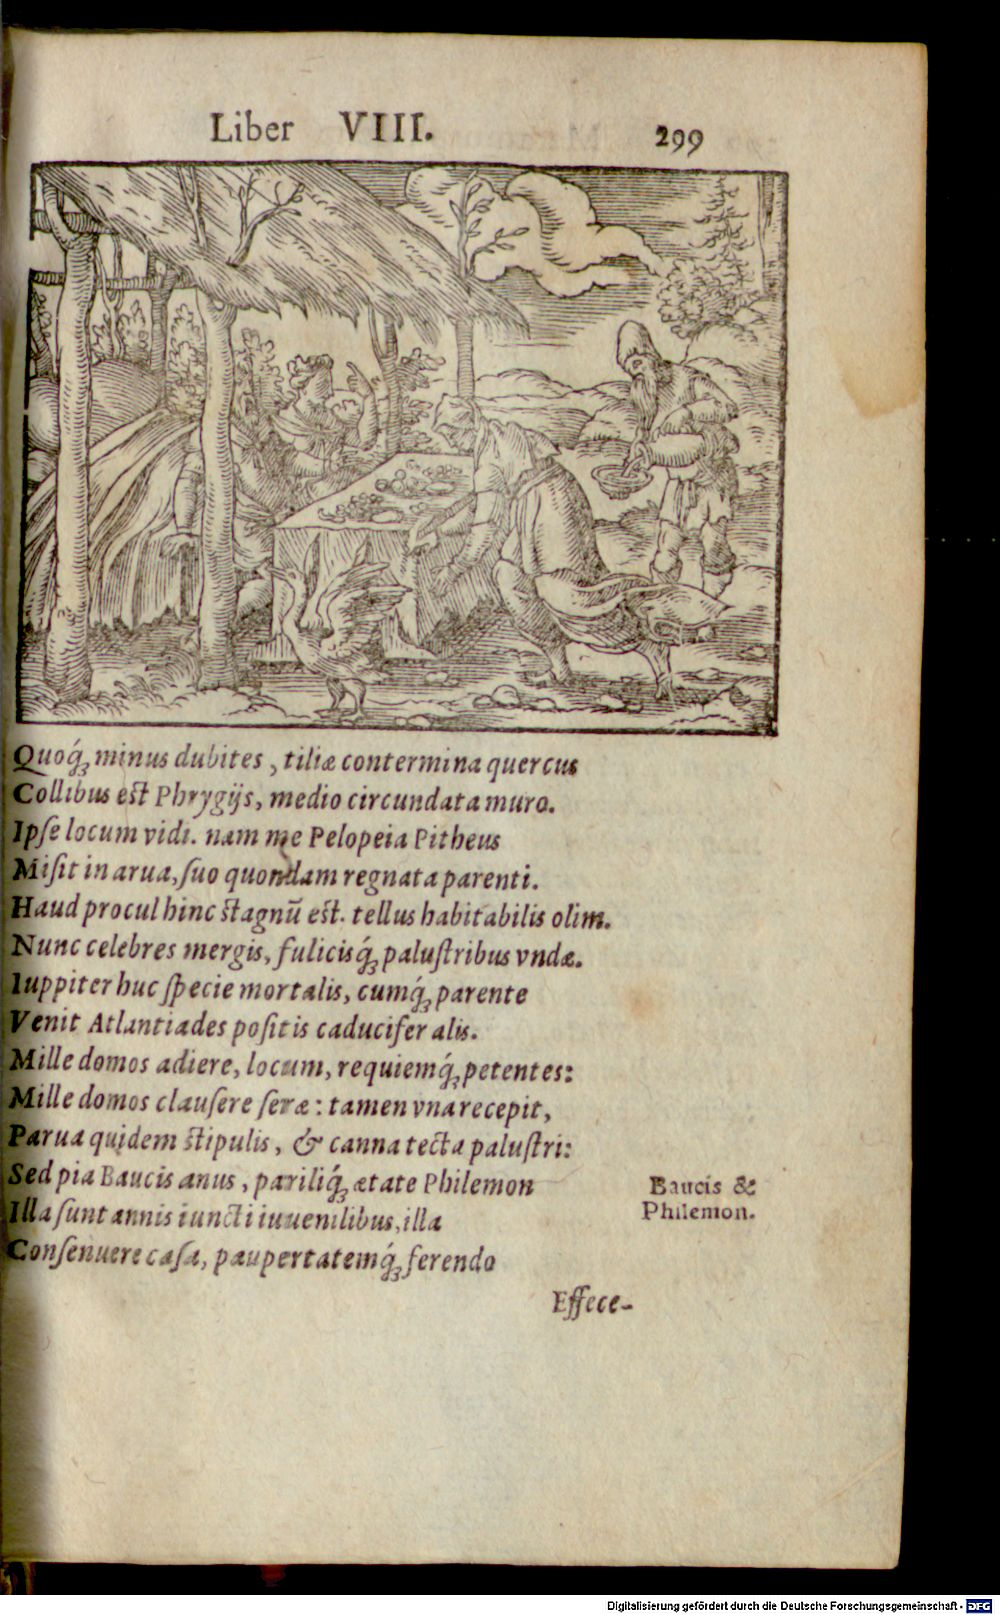 Liber VIII. 299
Quoq́ꝫ minus dubites, tiliæ contermina quercus
Collibus est Phrygijs, medio circundata muro.
Ipſe locum vidi. nam me Pelopeia Pitheus
Miſit in arua, ſuo quondam regnata parenti.
Haud procul hinc stagnū est. tellus habitabilis olim.
Nunc celebres mergis, fulicisq́ꝫ paluſtribus vndæ.
Iuppiter huc ſpecie mortalis, cumq́ꝫ parente
Venit Atlantiades poſitis caducifer alis.
Mille domos adiere, locum, requiemq́ꝫ petentes:
Mille domos clauſere ſeræ: tamen vna recepit,
Parua quidem stipulis, & canna tecta paluſtri:
Sed pia Baucis anus, pariliq́ꝫ ætate Philemon
Baucis &
Philemon.
Illa ſunt annis iuncti iuuenilibus, illa
Conſenuere caſa, paupertatemq́ꝫ ferendo
Effece-
Digitalisierung gefördert durch die Deutsche Forschungsgemeinschaft - DFG